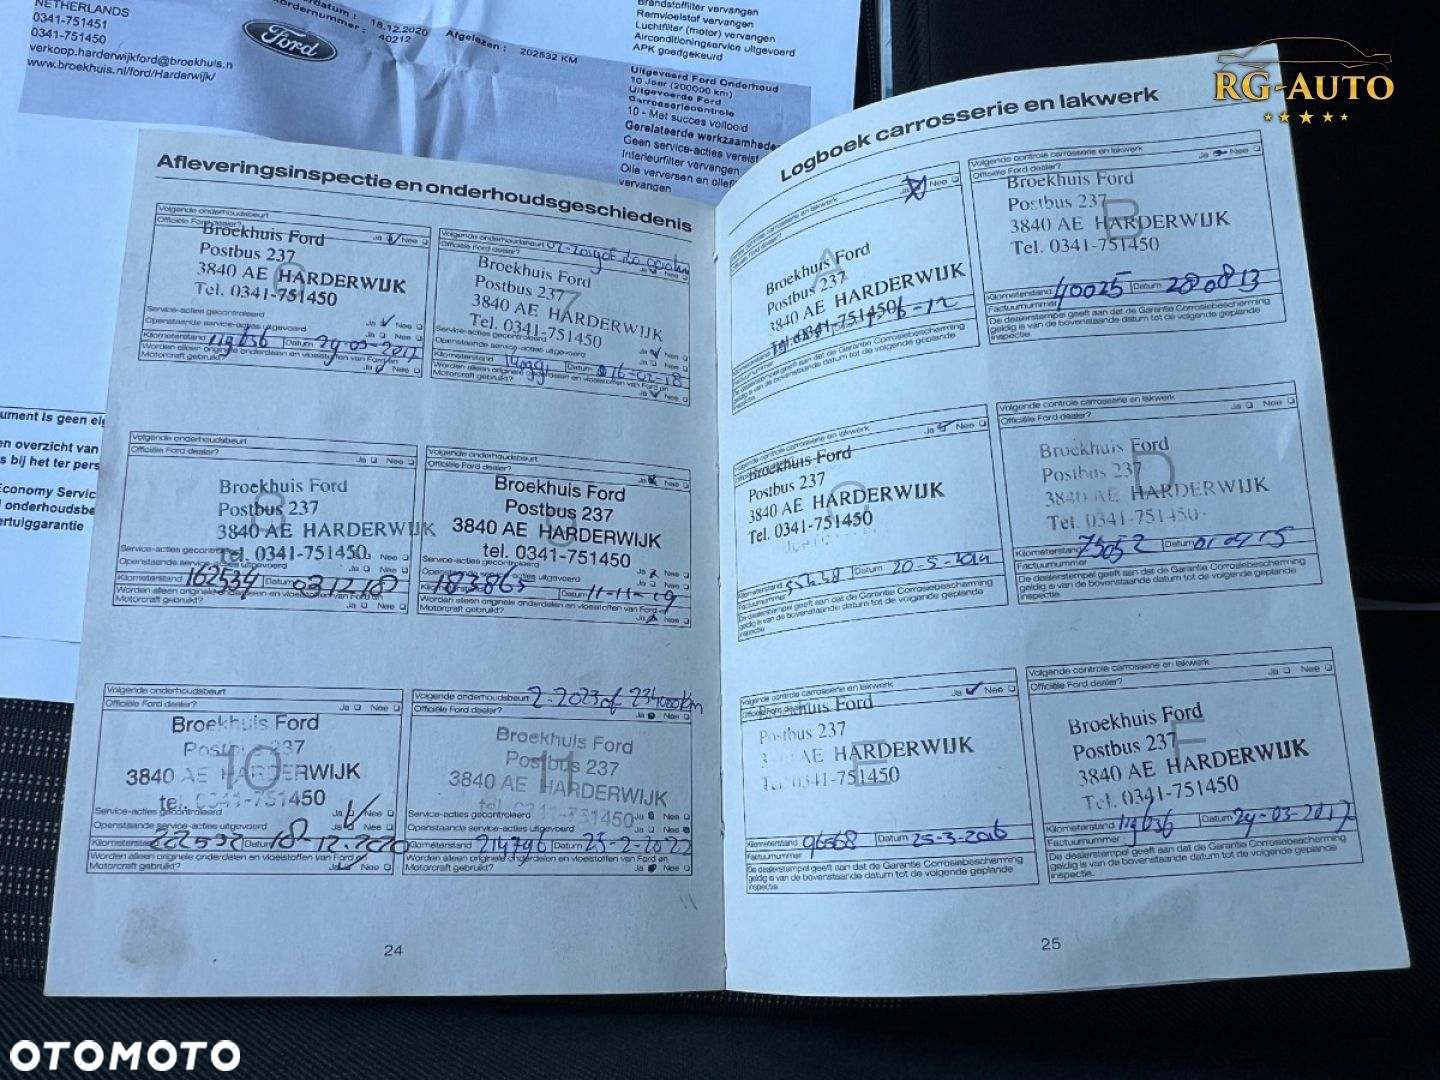 NETHERLANDS
0341-751451
0341-751450
verkoop.harderwijkford@broekhuis.n
www.broekhuis.nl/ford/Harderwijk/
18.12.2020
40212
Ford
Afgelezen : 202532 KM
Brandstoffilter vervangen
Remvloeistof vervangen
Luchtfilter (motor) vervangen
Airconditioningservice uitgevoerd
APK goedgekeurd
Uitgevoerd Ford Onderhoud
10 Jaar (200000 km)
Uitgevoerde Ford
Carrosseriecontrole
10 - Met succes voltooid
Gerelateerde werkzaamhede
Geen service-acties vereist
Interieurfilter vervangen
Olie verversen en oliefi
vervangen
RG-AUTO
ument is geen ei
en overzicht van
s bij het ter pers
Economy Servic
onderhoudsbe
ertuiggarantie
Afleveringsinspectie en onderhoudsgeschiedenis
Volgende onderhoudsbeurt
Officiële Ford dealer? Ja Nee
6
Broekhuis Ford
Postbus 237
3840 AE HARDERWIJK
Tel. 0341-751450
Service-acties gecontroleerd Ja Nee
Openstaande service-acties uitgevoerd Ja Nee
Kilometerstand 119636 Datum 24-03-2017
Worden alleen originele onderdelen en vloeistoffen van Ford en
Motorcraft gebruikt? Ja Nee
Volgende onderhoudsbeurt
Officiële Ford dealer? Ja Nee
7
Broekhuis Ford
Postbus 237
3840 AE HARDERWIJK
Tel. 0341-751450
Service-acties gecontroleerd
Openstaande service-acties uitgevoerd Ja Nee
Kilometerstand Datum
Worden alleen originele onderdelen en vloeistoffen van Ford en
Motorcraft gebruikt? Ja Nee
Volgende onderhoudsbeurt
Officiële Ford dealer? Ja Nee
8
Broekhuis Ford
Postbus 237
3840 AE HARDERWIJK
Tel. 0341-751450
Service-acties gecontroleerd Ja Nee
Openstaande service-acties uitgevoerd
Kilometerstand 162534 Datum 03.12.18
Worden alleen originele onderdelen en vloeistoffen van Ford en
Motorcraft gebruikt? Ja Nee
Volgende onderhoudsbeurt
Officiële Ford dealer? Ja Nee
Broekhuis Ford
Postbus 237
3840 AE HARDERWIJK
tel. 0341-751450
Service-acties gecontroleerd Ja Nee
Openstaande service-acties uitgevoerd Ja Nee
183865 Datum 11-11-19
Worden alleen originele onderdelen en vloeistoffen van Ford en
Motorcraft gebruikt? Ja Nee
Volgende onderhoudsbeurt
Officiële Ford dealer? Ja Nee
10
Broekhuis Ford
Postbus 237
3840 AE HARDERWIJK
tel. 0341-751450
Service-acties gecontroleerd Ja Nee
Openstaande service-acties uitgevoerd Ja Nee
Kilometerstand 202532 Datum 18-12-2020
Worden alleen originele onderdelen en vloeistoffen van Ford en
Motorcraft gebruikt? Ja Nee
Volgende onderhoudsbeurt 2-2023 of 234000km
Officiële Ford dealer? Ja Nee
11
Broekhuis Ford
Postbus 237
3840 AE HARDERWIJK
tel. 0341-751450
Service-acties gecontroleerd Ja Nee
Openstaande service-acties uitgevoerd Ja Nee
Kilometerstand 214796 Datum 25-2-2022
Worden alleen originele onderdelen en vloeistoffen van Ford en
Motorcraft gebruikt? Ja Nee
24
Logboek carrosserie en lakwerk
Volgende controle carrosserie en lakwerk Ja Nee
Officiële Ford dealer?
A
Broekhuis Ford
Postbus 237
3840 AE HARDERWIJK
Tel. 0341-751450
Kilometerstand
Factuurnummer
De dealerstempel geeft aan dat de Garantie Corrosiebescherming
geldig is van de bovenstaande datum tot de volgende geplande
inspectie.
Volgende controle carrosserie en lakwerk
Officiële Ford dealer? Ja Nee
B
Broekhuis Ford
Postbus 237
3840 AE HARDERWIJK
Tel. 0341-751450
Kilometerstand 40025 Datum 280813
Factuurnummer
De dealerstempel geeft aan dat de Garantie Corrosiebescherming
geldig is van de bovenstaande datum tot de volgende geplande
inspectie.
Volgende controle carrosserie en lakwerk
Ja Nee
C
Broekhuis Ford
Postbus 237
3840 AE HARDERWIJK
Tel. 0341-751450
Kilometerstand Datum 20-5-2014
Factuurnummer
De dealerstempel geeft aan dat de Garantie Corrosiebescherming
geldig is van de bovenstaande datum tot de volgende geplande
inspectie.
Volgende controle carrosserie en lakwerk
Officiële Ford dealer? Ja Nee
D
Broekhuis Ford
Postbus 237
3840 AE HARDERWIJK
Tel. 0341-751450
Kilometerstand 75052 Datum 010415
Factuurnummer
De dealerstempel geeft aan dat de Garantie Corrosiebescherming
geldig is van de bovenstaande datum tot de volgende geplande
inspectie.
Volgende controle carrosserie en lakwerk
Officiële Ford dealer? Ja Nee
E
Broekhuis Ford
Postbus 237
3840 AE HARDERWIJK
Tel. 0341-751450
Kilometerstand 96568 Datum 25-3-2016
Factuurnummer
De dealerstempel geeft aan dat de Garantie Corrosiebescherming
geldig is van de bovenstaande datum tot de volgende geplande
inspectie.
Volgende controle carrosserie en lakwerk
Officiële Ford dealer? Ja Nee
F
Broekhuis Ford
Postbus 237
3840 AE HARDERWIJK
Tel. 0341-751450
Kilometerstand 119636 Datum 24-03-2017
Factuurnummer
De dealerstempel geeft aan dat de Garantie Corrosiebescherming
geldig is van de bovenstaande datum tot de volgende geplande
inspectie.
25
OTOMOTO